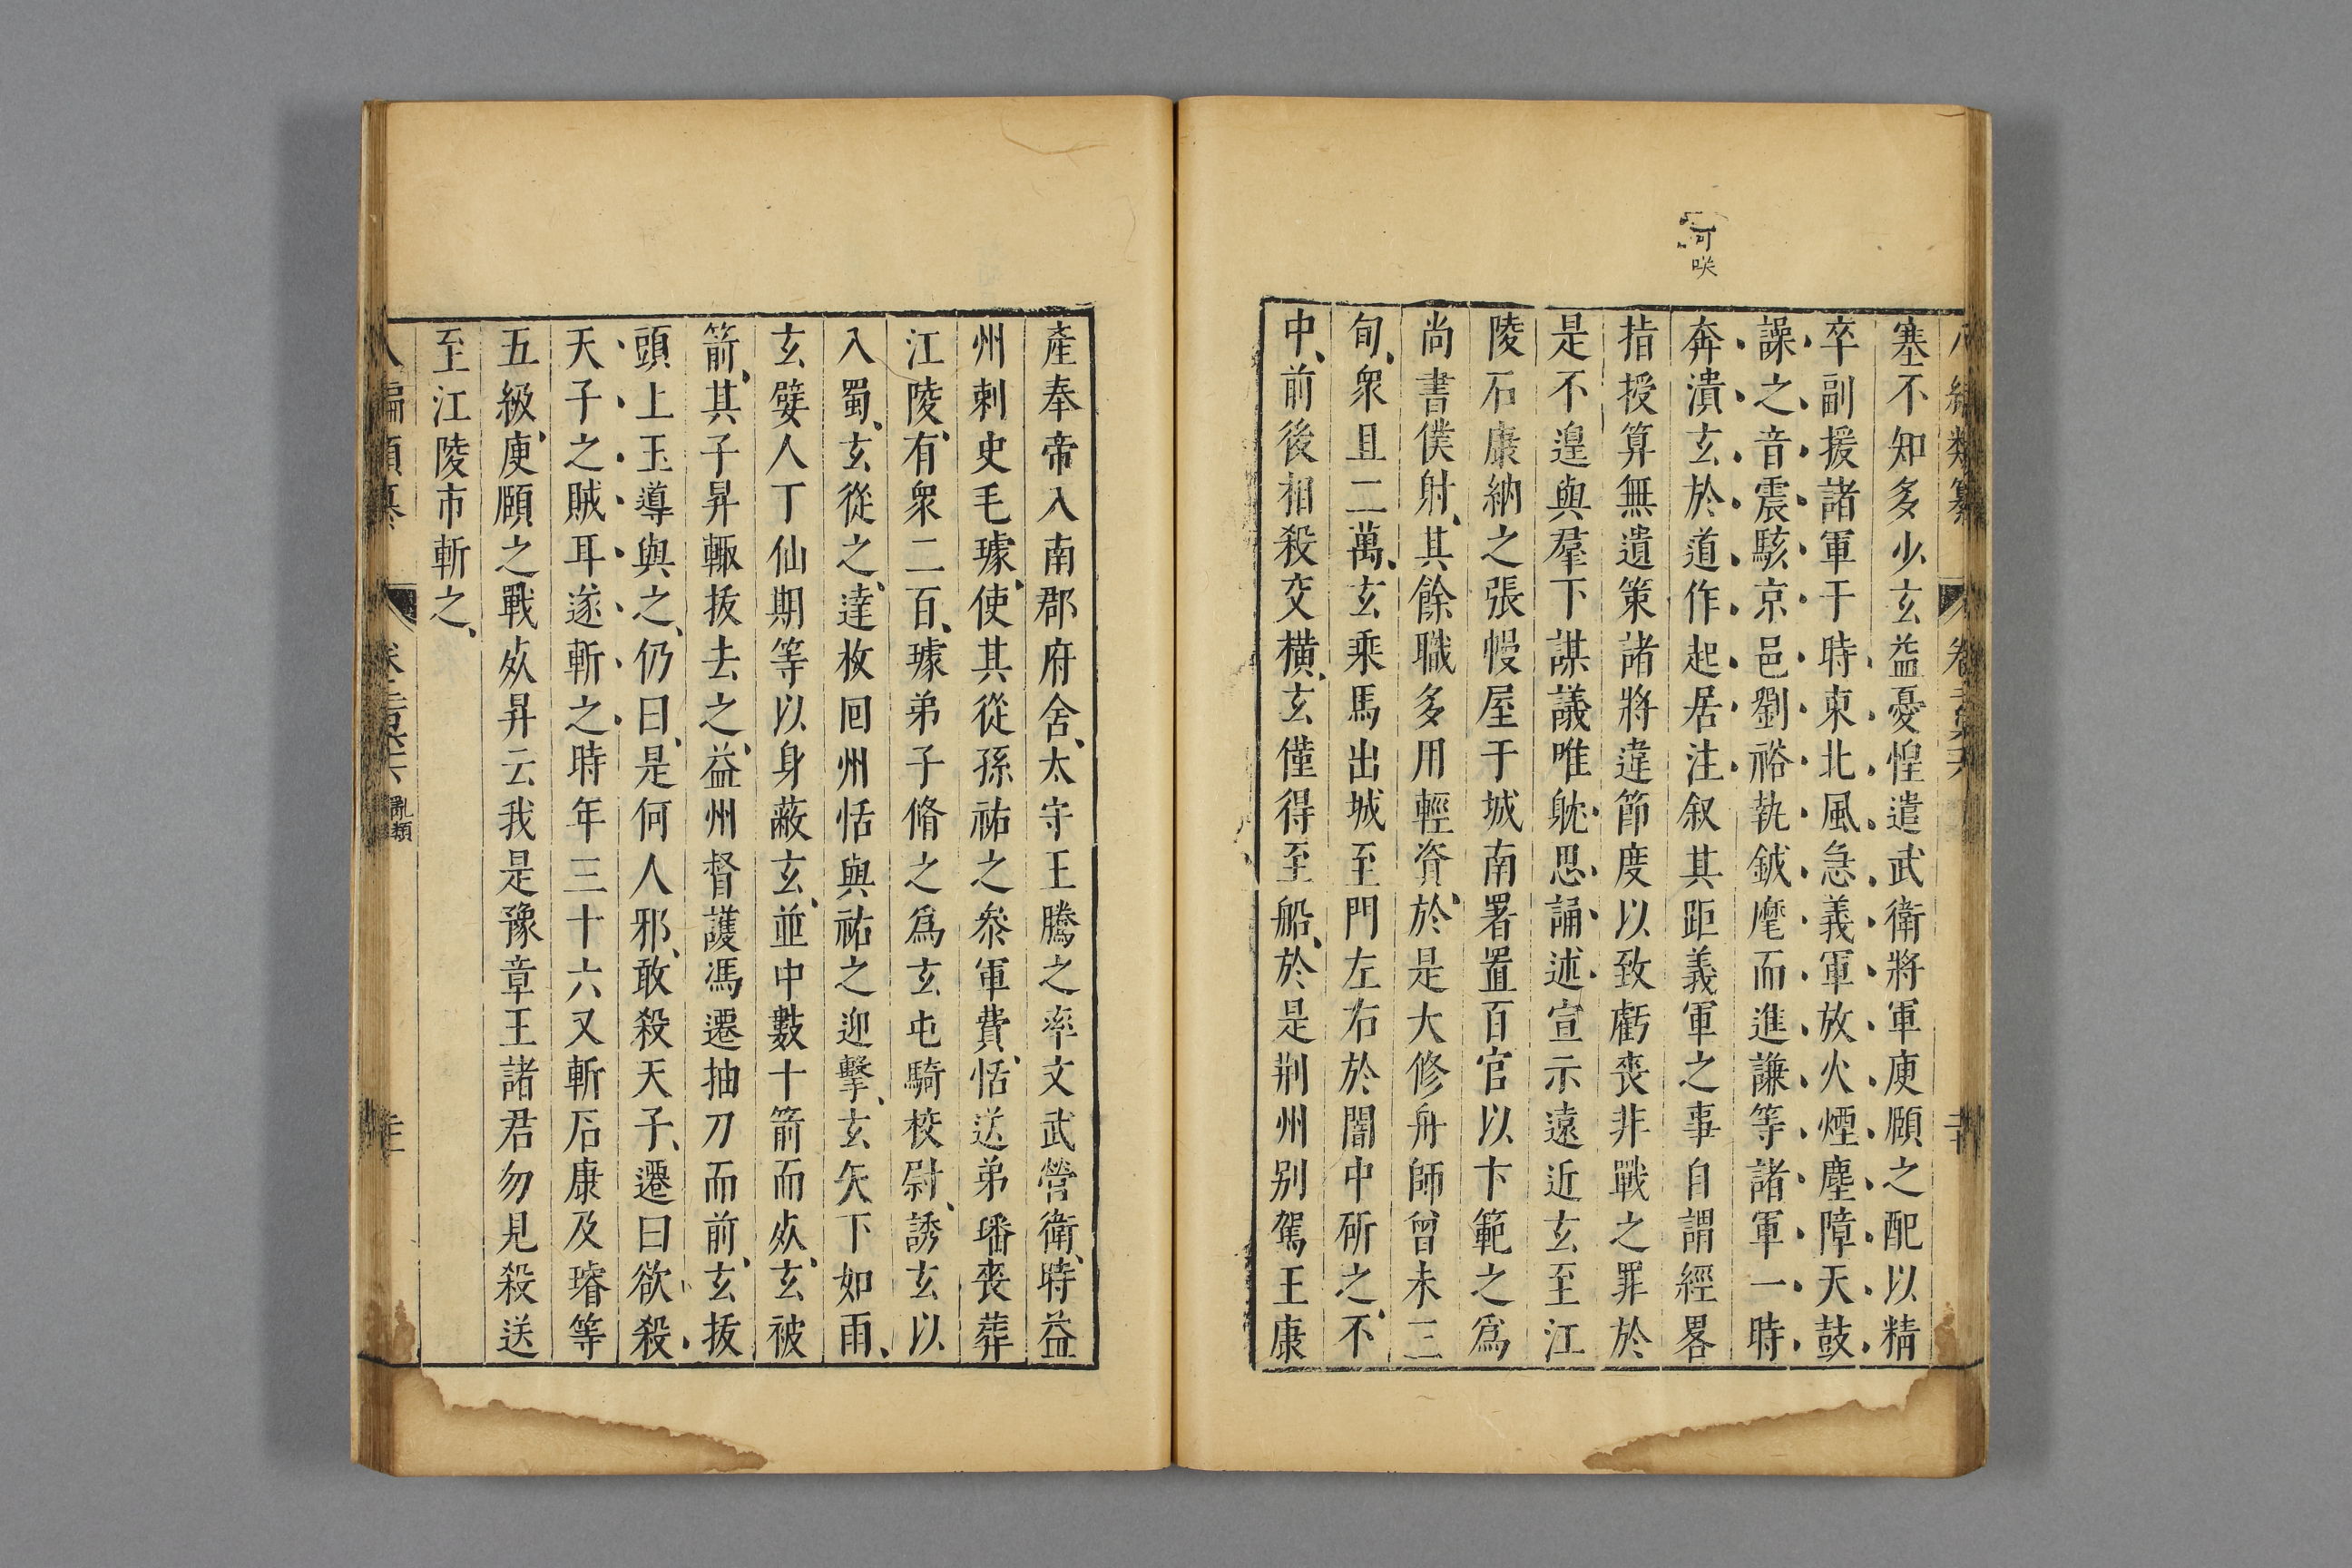 可咲
塞不知多少玄益憂惶遣武衛將軍庾頤之配以精
卒副援諸軍于時東北風急義軍放火煙塵障天鼓
譟之音震駭京邑劉裕執鉞麾而進謙等諸軍一時
奔潰玄於道作起居注叙其距義軍之事自謂經畧
指授算無遺策諸將違節度以致虧喪非戰之罪於
是不遑與羣下謀議唯躭思誦述宣示遠近玄至江
陵石康納之張幔屋于城南署置百官以卞範之爲
尚書僕射、其餘職多用輕資、於是大修舟師曾未三
旬、衆且二萬、玄乘馬出城至門左右於闇中斫之、不
中、前後相殺交橫、玄僅得至船、於是荆州别駕王康
產奉帝入南郡府舍、太守王騰之率文武營衛、時益
州刺史毛璩、使其從孫祐之叅軍費、恬送弟璠喪葬
江陵、有衆二百、璩弟子脩之爲玄屯騎校尉、誘玄以
入蜀、玄從之、達枚囘州恬與祐之迎擊、玄矢下如雨、
玄嬖人丁仙期等以身蔽玄、並中數十箭而死、玄被
箭、其子昇輒拔去之、益州督護馮遷抽刀而前、玄拔
頭上玉導與之、仍曰、是何人邪、敢殺天子、遷曰欲殺
天子之賊耳遂斬之時年三十六又斬石康及璿等
五級、庾頤之戰死昇云我是豫章王諸君勿見殺送
至江陵市斬之、
亂類